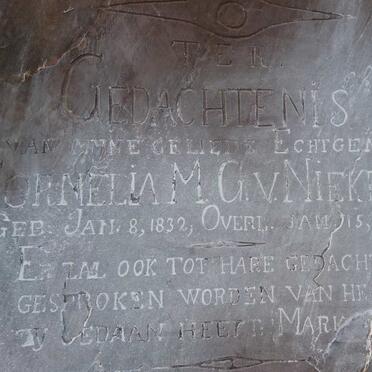 TER
GEDACHTENIS
VAN MYNE GELIEFDE ECHTGEN
CORNELIA M. G. V. NIEKE
GEB. JAN. 8, 1832, OVERL. JAM. 15,
ER ZAL OOK TOT HARE GEDACHT
GESPROKEN WORDEN VAN HE
ZY GEDAAN HEEFT MARK